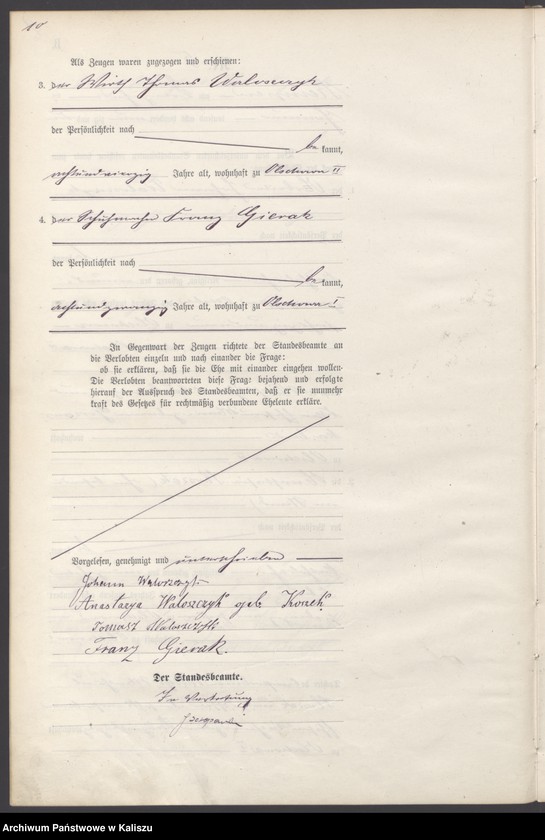 10
Als Zeugen waren zugezogen und erschienen:
3. der Wirth Thomas Waloszczyk
der Persönlichkeit nach
be kannt,
achtundvierzig Jahre alt, wohnhaft zu Olschowa II
4. der Schuhmacher Franz Gierak
der Persönlichkeit nach
be kannt,
achtundzwanzig Jahre alt, wohnhaft zu Olschowa I
In Gegenwart der Zeugen richtete der Standesbeamte an
die Verlobten einzeln und nach einander die Frage:
ob sie erklären, daß sie die Ehe mit einander eingehen wollen.
Die Verlobten beantworteten diese Frage bejahend und erfolgte
hierauf der Ausspruch des Standesbeamten, daß er sie nunmehr
kraft des Gesetzes für rechtmäßig verbundene Eheleute erkläre.
Vorgelesen, genehmigt und unterschrieben
Johann Waloszczyk
Anastazya Waloszczyk geb. Kurzek
Tomasz Waloszczyk
Franz Gierak.
Der Standesbeamte.
In Vertretung
Archiwum Państwowe w Kaliszu